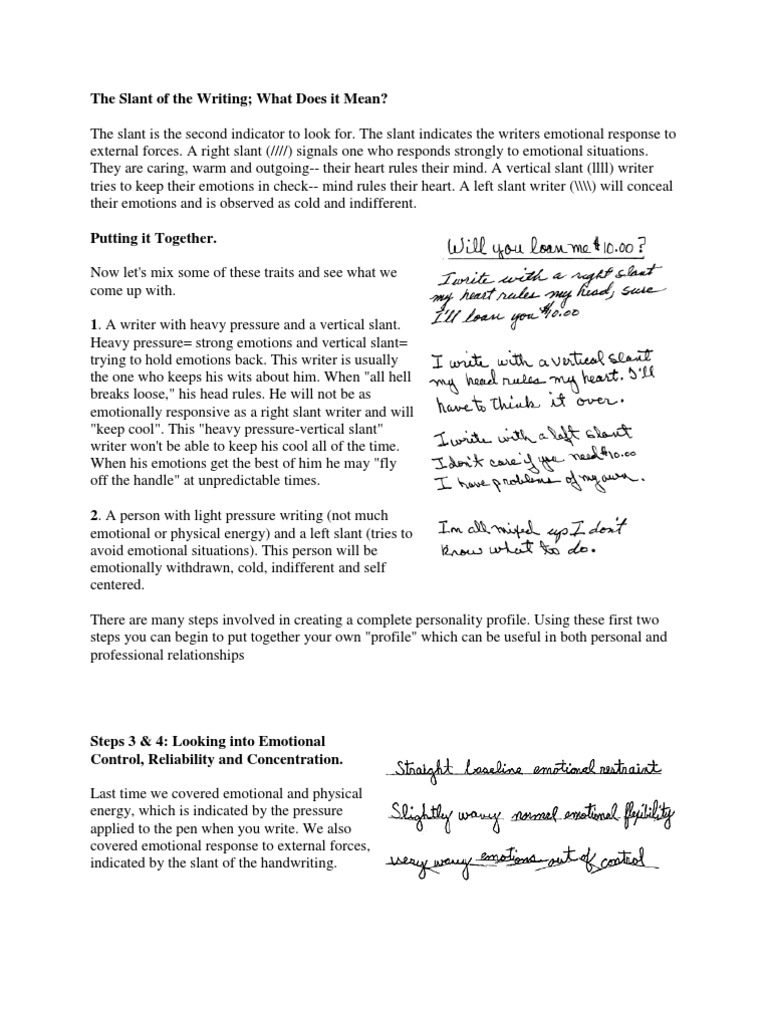 The Slant of the Writing; What Does it Mean?
The slant is the second indicator to look for. The slant indicates the writers emotional response to
external forces. A right slant (////) signals one who responds strongly to emotional situations.
They are caring, warm and outgoing-- their heart rules their mind. A vertical slant (llll) writer
tries to keep their emotions in check-- mind rules their heart. A left slant writer (\\\\) will conceal
their emotions and is observed as cold and indifferent.
Putting it Together.
Now let's mix some of these traits and see what we
come up with.
1. A writer with heavy pressure and a vertical slant.
Heavy pressure= strong emotions and vertical slant=
trying to hold emotions back. This writer is usually
the one who keeps his wits about him. When "all hell
breaks loose," his head rules. He will not be as
emotionally responsive as a right slant writer and will
"keep cool". This "heavy pressure-vertical slant"
writer won't be able to keep his cool all of the time.
When his emotions get the best of him he may "fly
off the handle" at unpredictable times.
2. A person with light pressure writing (not much
emotional or physical energy) and a left slant (tries to
avoid emotional situations). This person will be
emotionally withdrawn, cold, indifferent and self
centered.
Will you loan me $10.00?
I write with a right slant
my heart rules my head, sure
I'll loan you $10.00
I write with a vertical slant
my head rules my heart. I'll
have to think it over.
I write with a left slant
I don't care if you need $10.00
I have problems of my own.
Im all mixed up I don't
know what to do.
There are many steps involved in creating a complete personality profile. Using these first two
steps you can begin to put together your own "profile" which can be useful in both personal and
professional relationships
Steps 3 & 4: Looking into Emotional
Control, Reliability and Concentration.
Last time we covered emotional and physical
energy, which is indicated by the pressure
applied to the pen when you write. We also
covered emotional response to external forces,
indicated by the slant of the handwriting.
Straight baseline emotional restraint
Slightly wavy normal emotional flexibility
very wavy emotions out of control